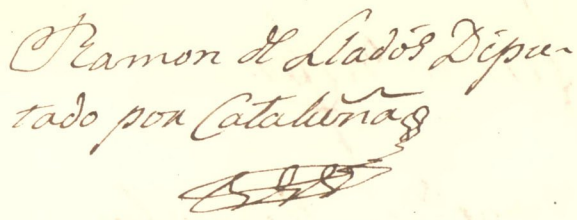 Ramon de Lladós Dipu-
tado por Cataluña